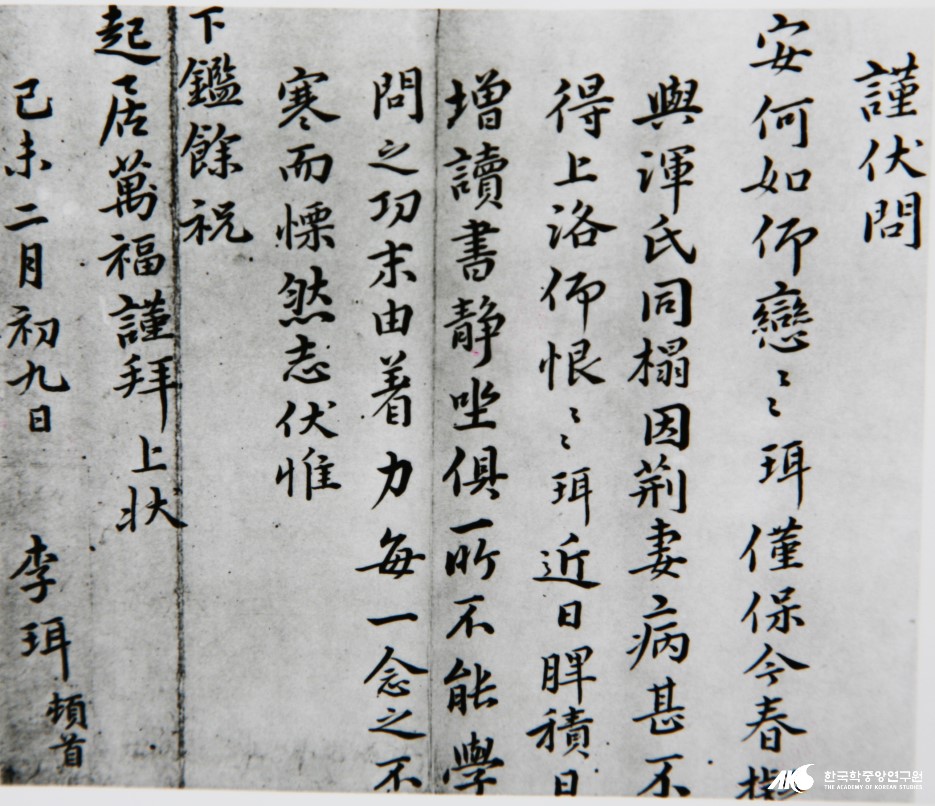 謹伏問
安何如仰戀〻珥僅保今春
與渾氏同榻因荊妻病甚不
得上洛仰恨〻珥近日脾積日
增讀書靜坐俱一所不能學
問之功末由着力每一念之不
寒而慄然志伏惟
下鑑餘祝
起居萬福謹拜上狀
己未二月初九日 李珥 頓首
한국학중앙연구원
THE ACADEMY OF KOREAN STUDIES